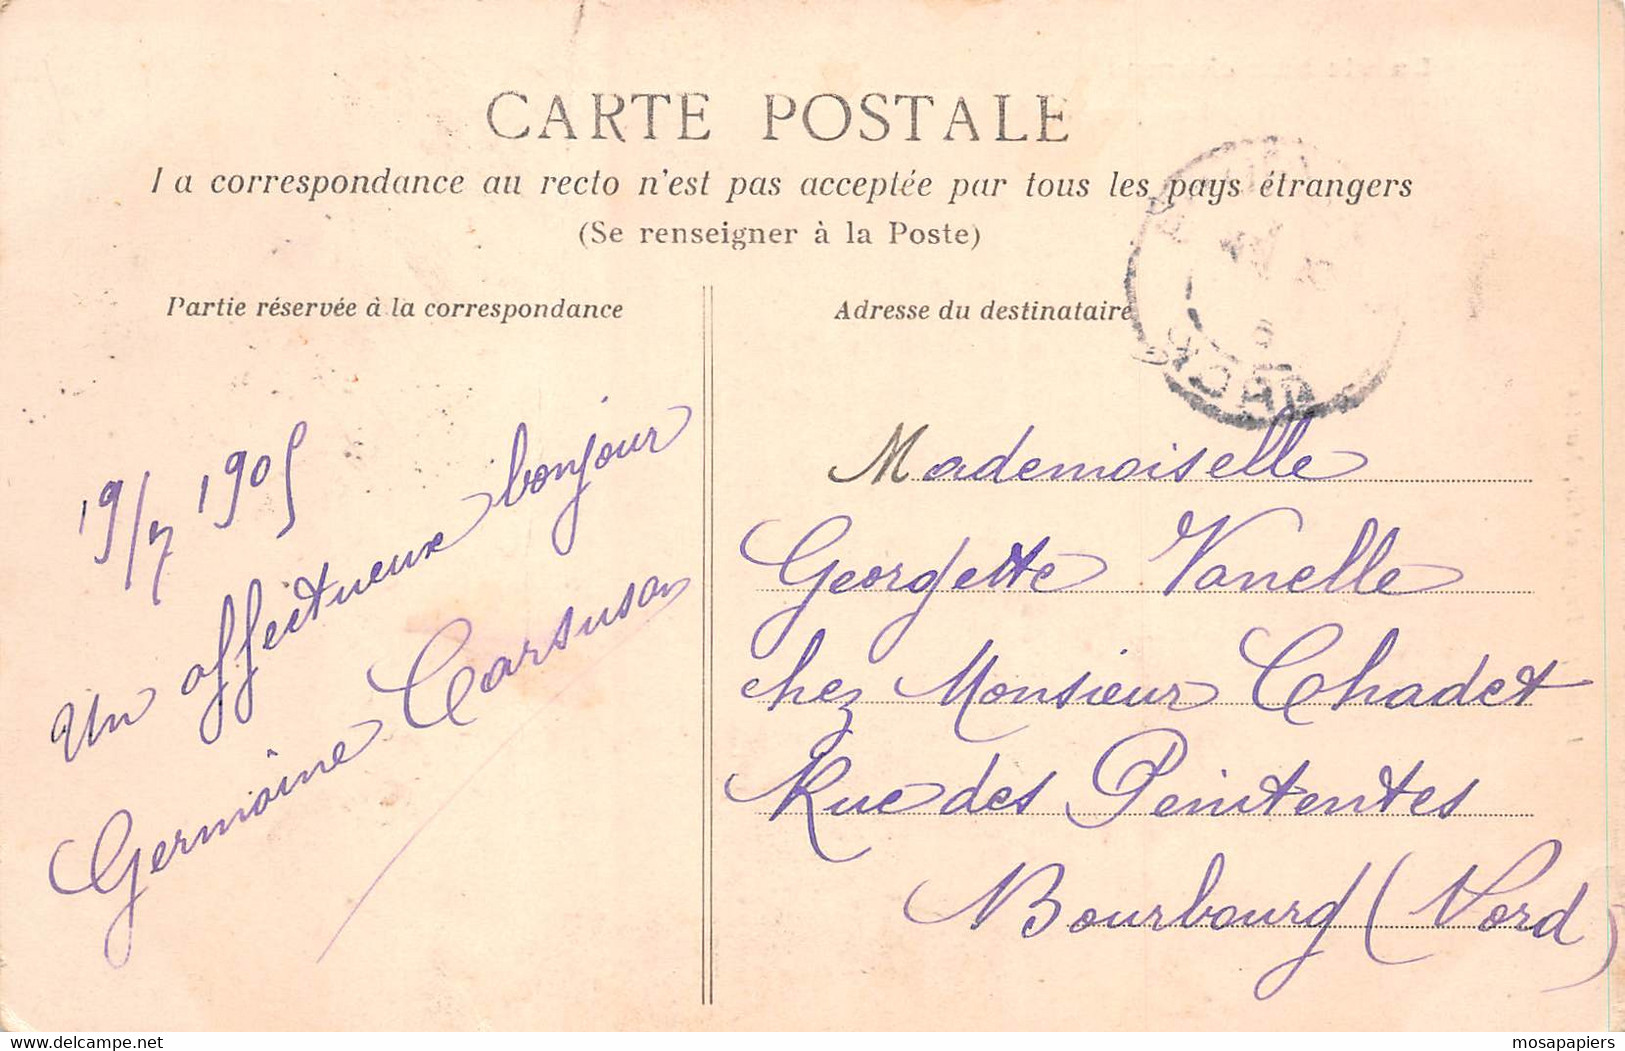 CARTE POSTALE
La correspondance au recto n'est pas acceptée par tous les pays étrangers
(Se renseigner à la Poste)
Partie réservée à la correspondance
Adresse du destinataire
19/7 1905
Un affectueux bonjour
Germaine Carsuson
Mademoiselle
Georgette Vanelle
chez Monsieur Chadet
Rue des Penitentes
Bourbourg (Nord)
mosapapiers